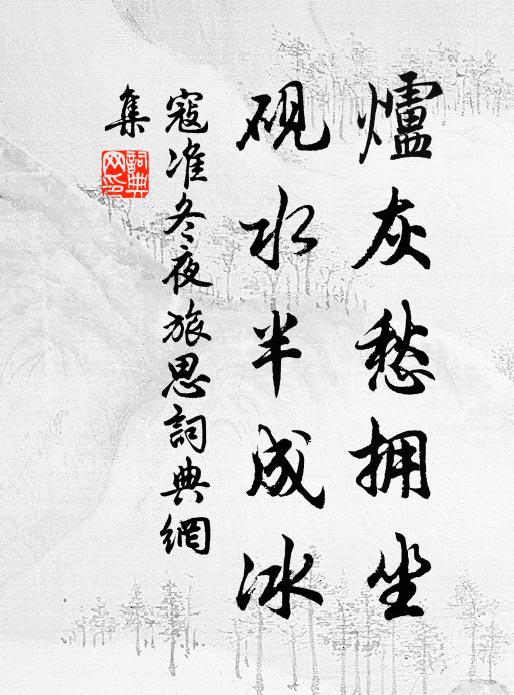 爐灰愁拥坐
硯水半成冰
寇准冬夜旅思詞典網
集
詞典
网印